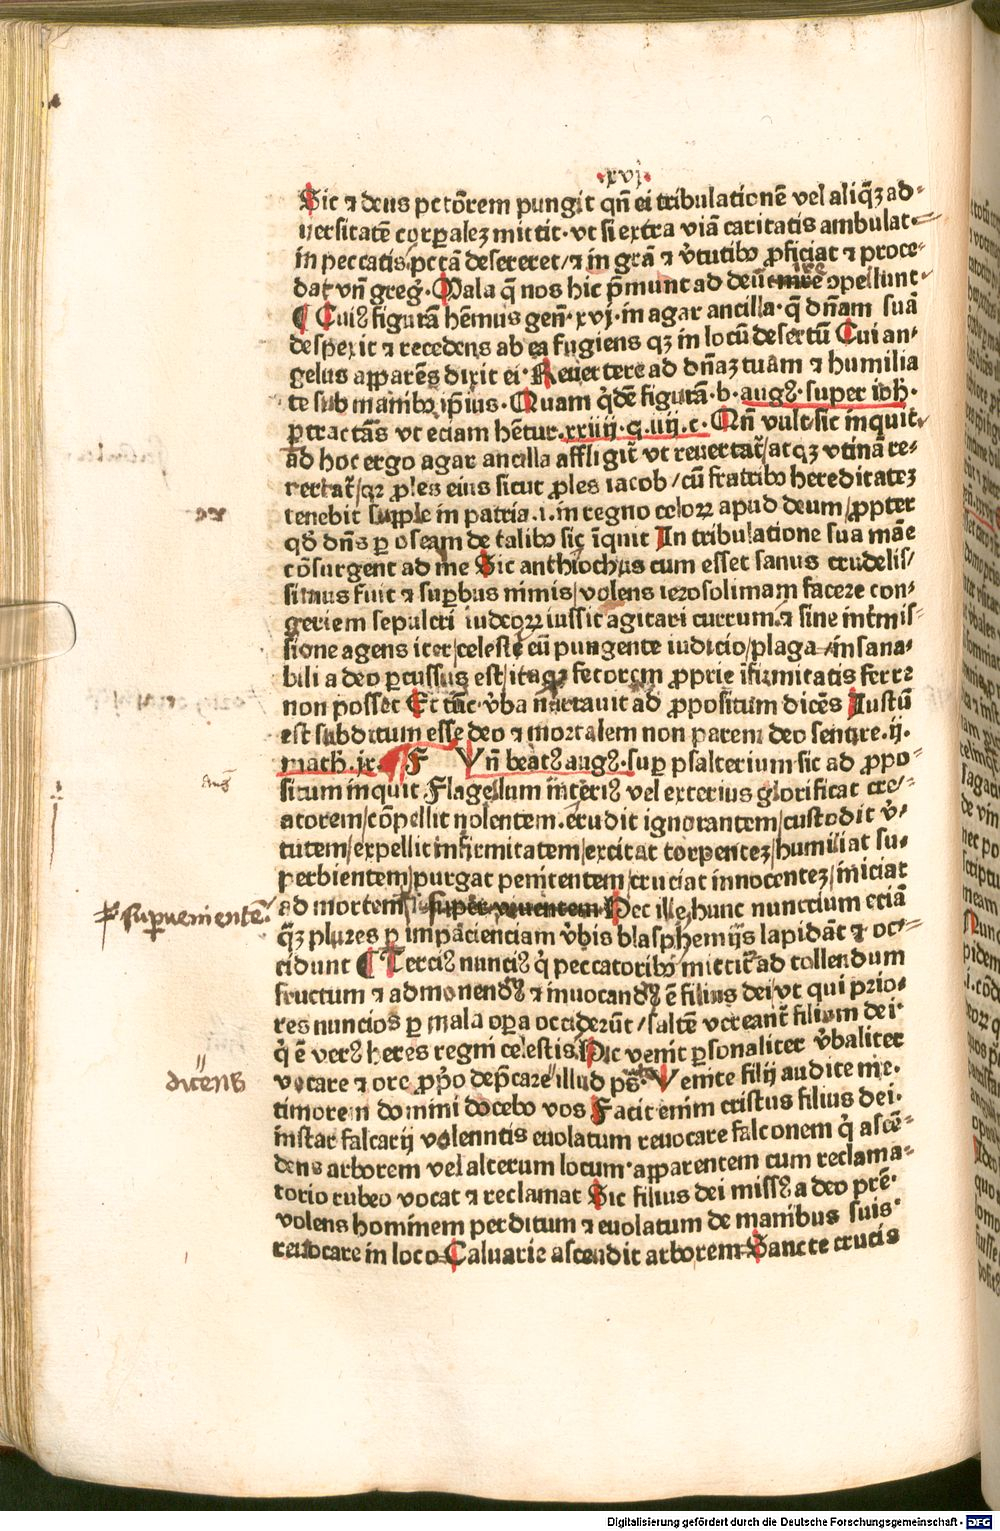 ·xvj·
Sic ⁊ deus pctõrem pungit qñ ei tribulationẽ vel aliq̃ꝫ ad⸗
uersitatẽ corꝑaleꝫ mittit· vt si extra viã caritatis ambulat⸗
in peccatis/pctã desereret/⁊ in grã ⁊ v̉tutibꝰ ꝓficiat ⁊ proce⸗
dat vñ greg̉· Mala q̃ nos hic p̃munt ad deũ ire ↄpellunt·
¶ Cuiꝰ figurã hẽmus geñ· xvj· in agar ancilla· q̃ dñam suã
despexit ⁊ recedens ab ea fugiens qꝫ in locũ desertũ Cui an⸗
gelus apparẽs dixit ei· Reuertere ad dñaꝫ tuam ⁊ humilia
te sub manibꝰ ip̃ius· Quam q̃dẽ figurã· b· augꝰ· super ioh̄·
ꝑtractãs vt eciam hẽtur· xxiiij· q· iiij· c· Nñ vult/sic inquit·
ad hoc ergo agar ancilla affligit̃ vt reuertat̃/at qꝫ vtinã re⸗
uertat̃/qꝛ ꝓles eius sicut ꝓles iacob/cũ fratribꝰ hereditateꝫ
tenebit supple in patria· i· in regno celoꝝ apud deum/ꝓpter
qd̃ dñs ꝑ oseam de talibꝰ sic ĩquit In tribulatione sua mãe
cõsurgent ad me Sic anthiochus cum esset sanus crudelis/
simus fuit ⁊ suꝑbus nimis/volens ierosolimam facere con⸗
geriem sepulcri iudeoꝝ iussit agitari currum· ⁊ sine int̃mis⸗
sione agens iter/celeste eũ pungente iudicio/plaga insana⸗
bili a deo ꝑcussus est/ita qꝫ fetorem ꝓprie ĩfirmitatis ferre
non posset Et tũc v̉ba narrauit ad ꝓpositum dicẽs Iustũ
est subditum esse deo ⁊ mortalem non parem deo sentire· ij·
mach̄· ix· F Vñ beatꝰ augꝰ· suꝑ psalterium sic ad ꝓpo⸗
situm inquit Flagellum ĩteriꝰ vel exterius glorificat cre⸗
atorem/cõpellit nolentem· erudit ignorantem/custodit v̉⸗
tutem/expellit infirmitatem/excitat torpenteꝫ/humiliat su⸗
perbientem/purgat penitentem/cruciat innocenteꝫ/iniciat
ad mortem super viuentem Hec ille/hunc nunccium eciã
q̃ꝫ plures ꝑ impacienciam v̉bis blasphemijs lapidãt ⁊ oc⸗
cidunt ¶ Terciꝰ nunciꝰ q̉ peccatoribꝰ mittit̃ ad tollendum
fructum ⁊ admonendꝰ ⁊ inuocandꝰ ẽ filius dei/vt qui prio⸗
res nuncios ꝑ mala oꝑa occiderũt/saltẽ vereant̃ filium dei·
q̉ ẽ verꝰ heres regni celestis· Hic venit ꝑsonaliter v̉baliter
vocare ⁊ ore ꝓpꝰo dep̃care illud psꝰ Venite filij audite me·
timorem domini docebo vos Facit enim cristus filius dei·
instar falcarij volenntis euolatum reuocare falconem q̉ ascẽ⸗
dens arborem vel alterum locum· apparentem cum reclama⸗
torio rubeo vocat ⁊ reclamat Sic filius dei missꝰ a deo prẽ·
volens hominem perditum ⁊ euolatum de manibus suis·
reuocare in loco Caluarie ascendit arborem Sancte crucis
suꝑuenientẽ
dicens
Digitalisierung gefördert durch die Deutsche Forschungsgemeinschaft - DFG